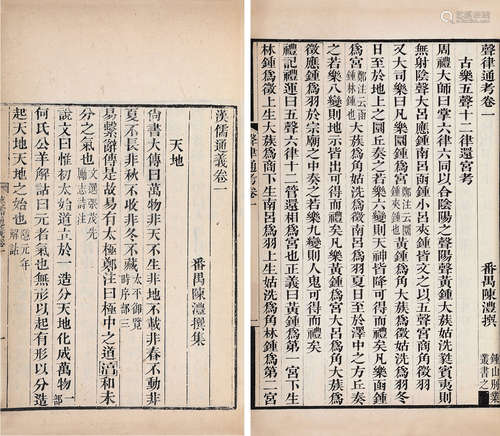 聲律通考卷一
番禺陳澧撰
鍾山別業叢書之
古樂五聲十二律還宮考
周禮大師曰掌六律六同以合陰陽之聲陽聲黃鍾大蔟姑洗蕤賓夷則
無射陰聲大呂應鍾南呂函鍾小呂夾鍾皆文之以五聲宮商角徵羽
又大司樂曰凡樂圜鍾爲宮鄭注云圜鍾夾鍾也黃鍾爲角大蔟爲徵姑洗爲羽冬
日至於地上之圜丘奏之若樂六變則天神皆降可得而禮矣凡樂函鍾
爲宮鄭注云函鍾林鍾也大蔟爲角姑洗爲徵南呂爲羽夏日至於澤中之方丘奏
之若樂八變則地示皆出可得而禮矣凡樂黃鍾爲宮大呂爲角大蔟爲
徵應鍾爲羽於宗廟之中奏之若樂九變則人鬼可得而禮矣
禮記禮運曰五聲六律十二管還相爲宮也正義曰黃鍾爲第一宮下生
林鍾爲徵上生大蔟爲商下生南呂爲羽上生姑洗爲角林鍾爲第二宮
聲律通考卷一
漢儒通義卷一
番禺陳澧撰集
天地
尙書大傳曰萬物非天不生非地不載非春不動非
夏不長非秋不收非冬不藏太平御覽時序部三
易繫辭傳是故易有太極鄭注曰極中之道淳和未
分之氣也文選張茂先勵志詩注
說文曰惟初太始道立於一造分天地化成萬物一部
何氏公羊解詁曰元者氣也無形以起有形以分造
起天地天地之始也隱元年解詁